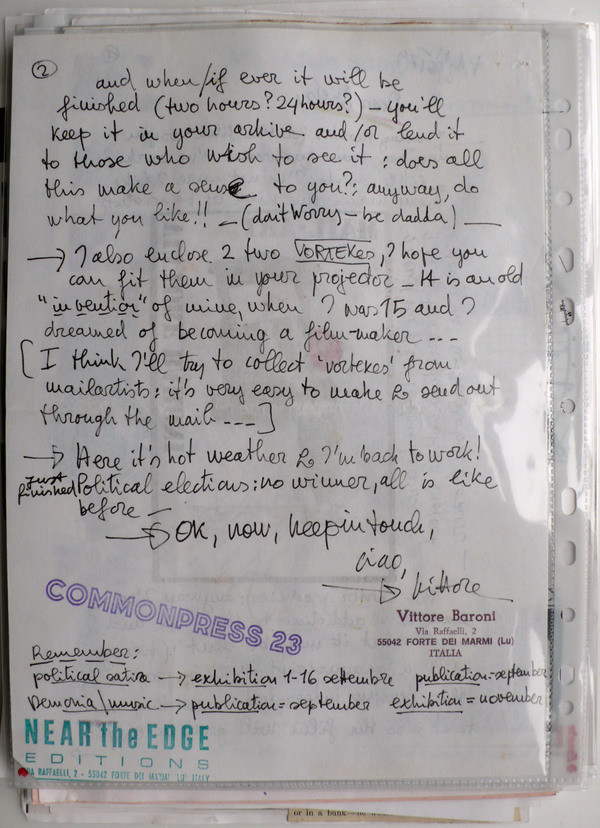 2
and when/if ever it will be
finished (two hours? 24 hours?) – you'll
keep it in your arkive and/or lend it
to those who wish to see it : does all
this make a sense to you?; anyway, do
what you like!! – (don't worry – be dadda) —
→ I also enclose 2 two VORTEXES, I hope you
can fit them in your projector – It is an old
"invention" of mine, when I was 15 and I
dreamed of becoming a film-maker ---
[I think I'll try to collect 'vortexes' from
mailartists: it's very easy to make & send out
through the mail ---]
→ Here it's hot weather & I'm back to work!
Just finished Political elections: no winner, all is like
before –
→ OK, now, keep in touch,
ciao,
→ Vittore
COMMONPRESS 23
Vittore Baroni
Via Raffaelli, 2
55042 FORTE DEI MARMI (Lu)
ITALIA
Remember:
political satira → exhibition 1-16 settembre publication = september
Demonia/music → publication = september exhibition = november
NEAR the EDGE
EDITIONS
VIA RAFFAELLI, 2 - 55042 FORTE DEI MARMI LU ITALY
or in a bank